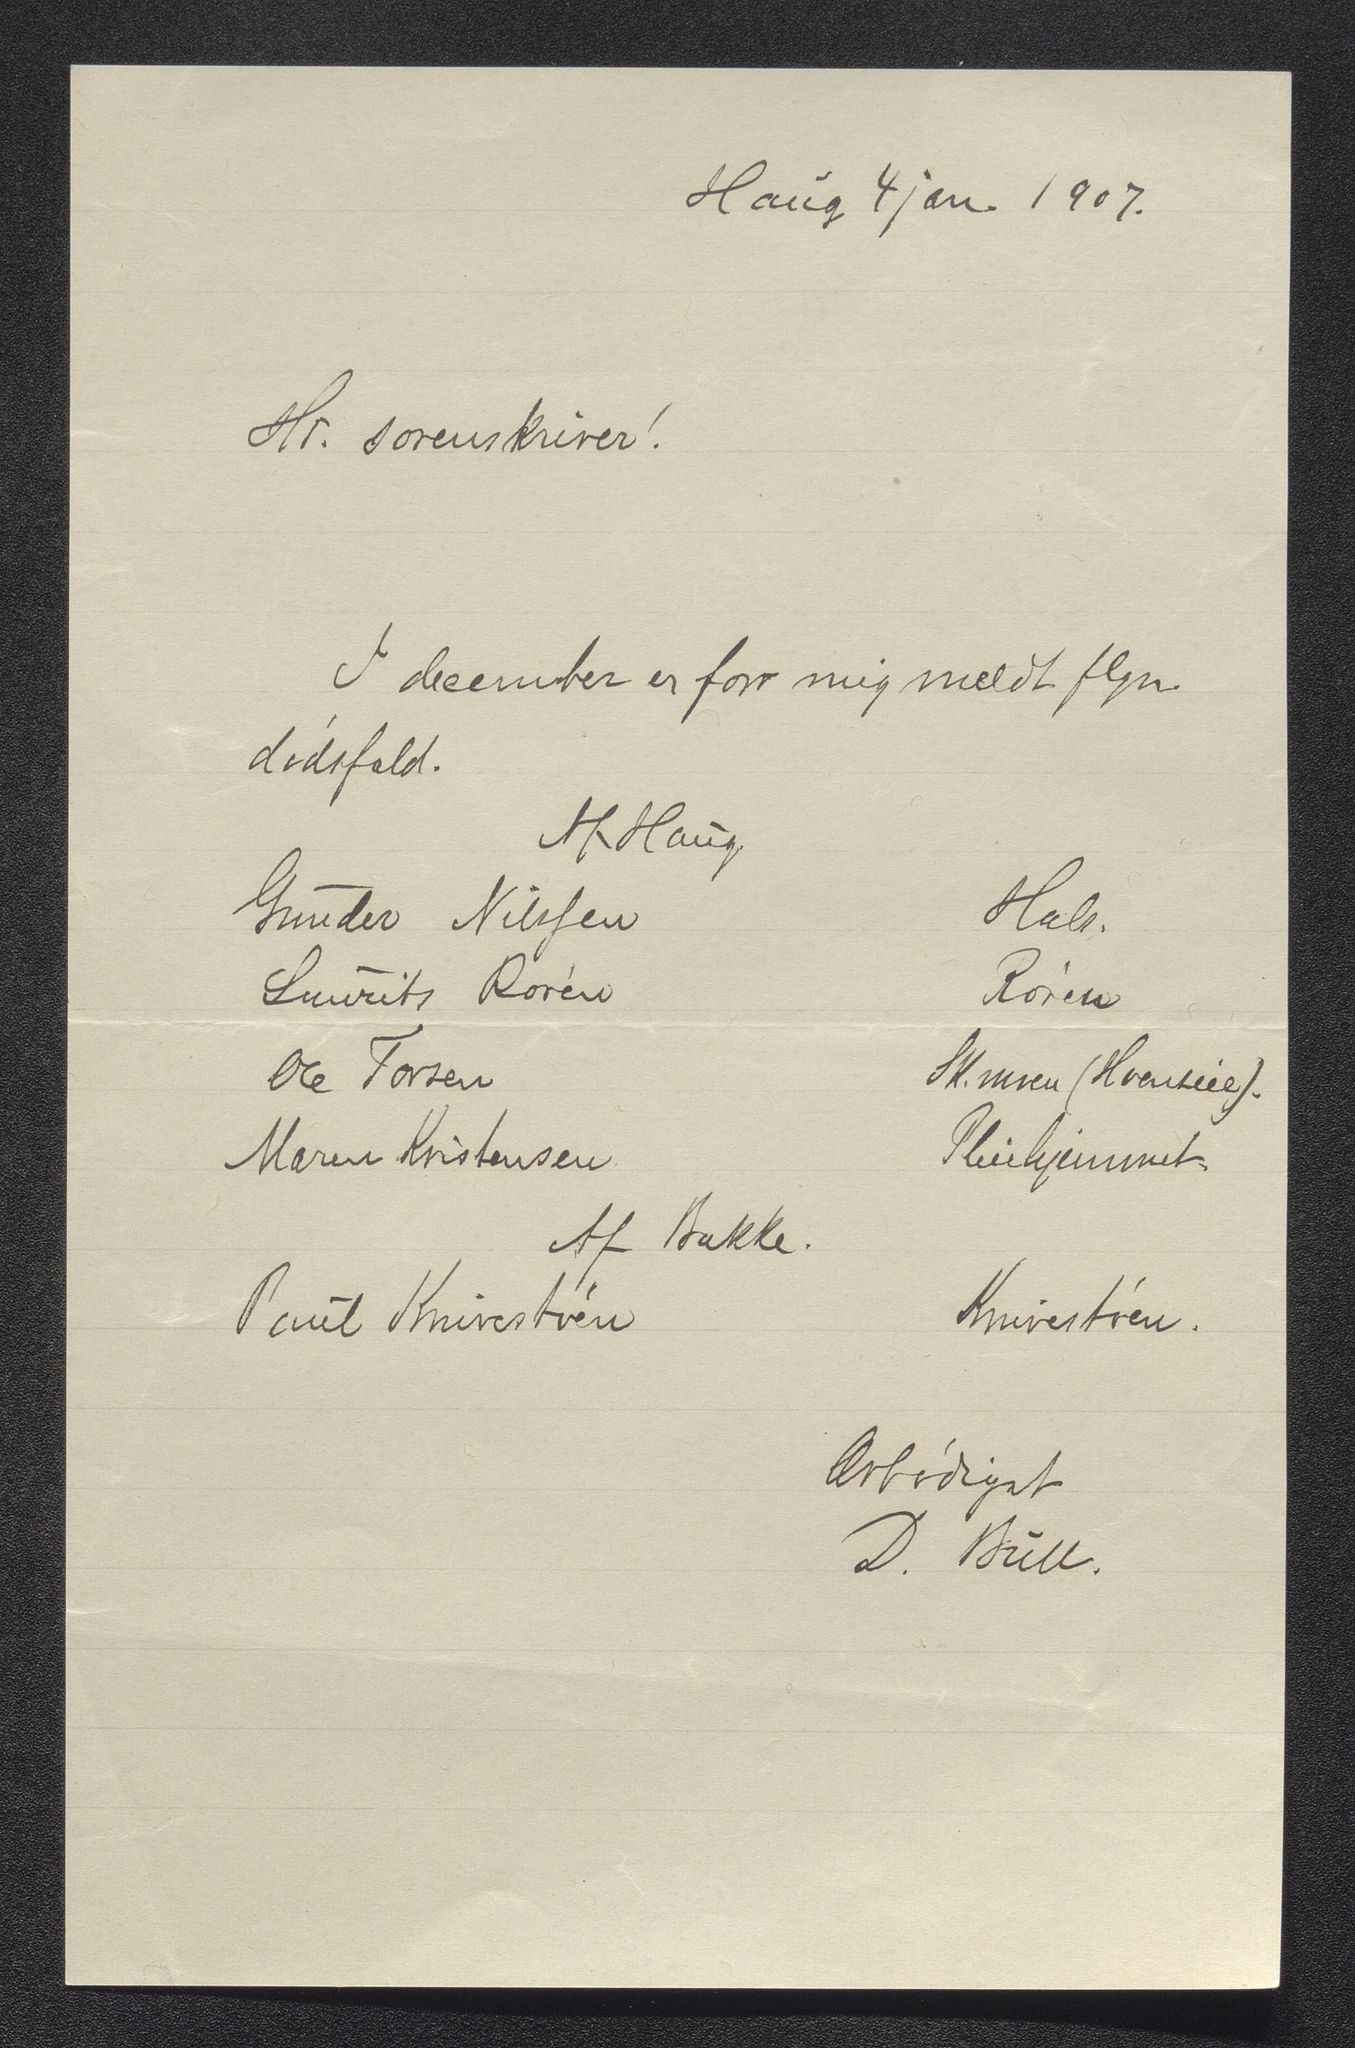 Haug 4 jan. 1907.
Hr. sorenskriver!
I december er for mig meldt flgn.
dødsfald.
Af Haug.
Gunder Nilssen Hals.
Laurits Røren Røren
Ole Torsen (Hvenseie).
Maren Kristensen Pleiehjemmet.
Af Bakke.
Paul Knivestøen Knivestøen.
Ærbødigst
D. Bull.